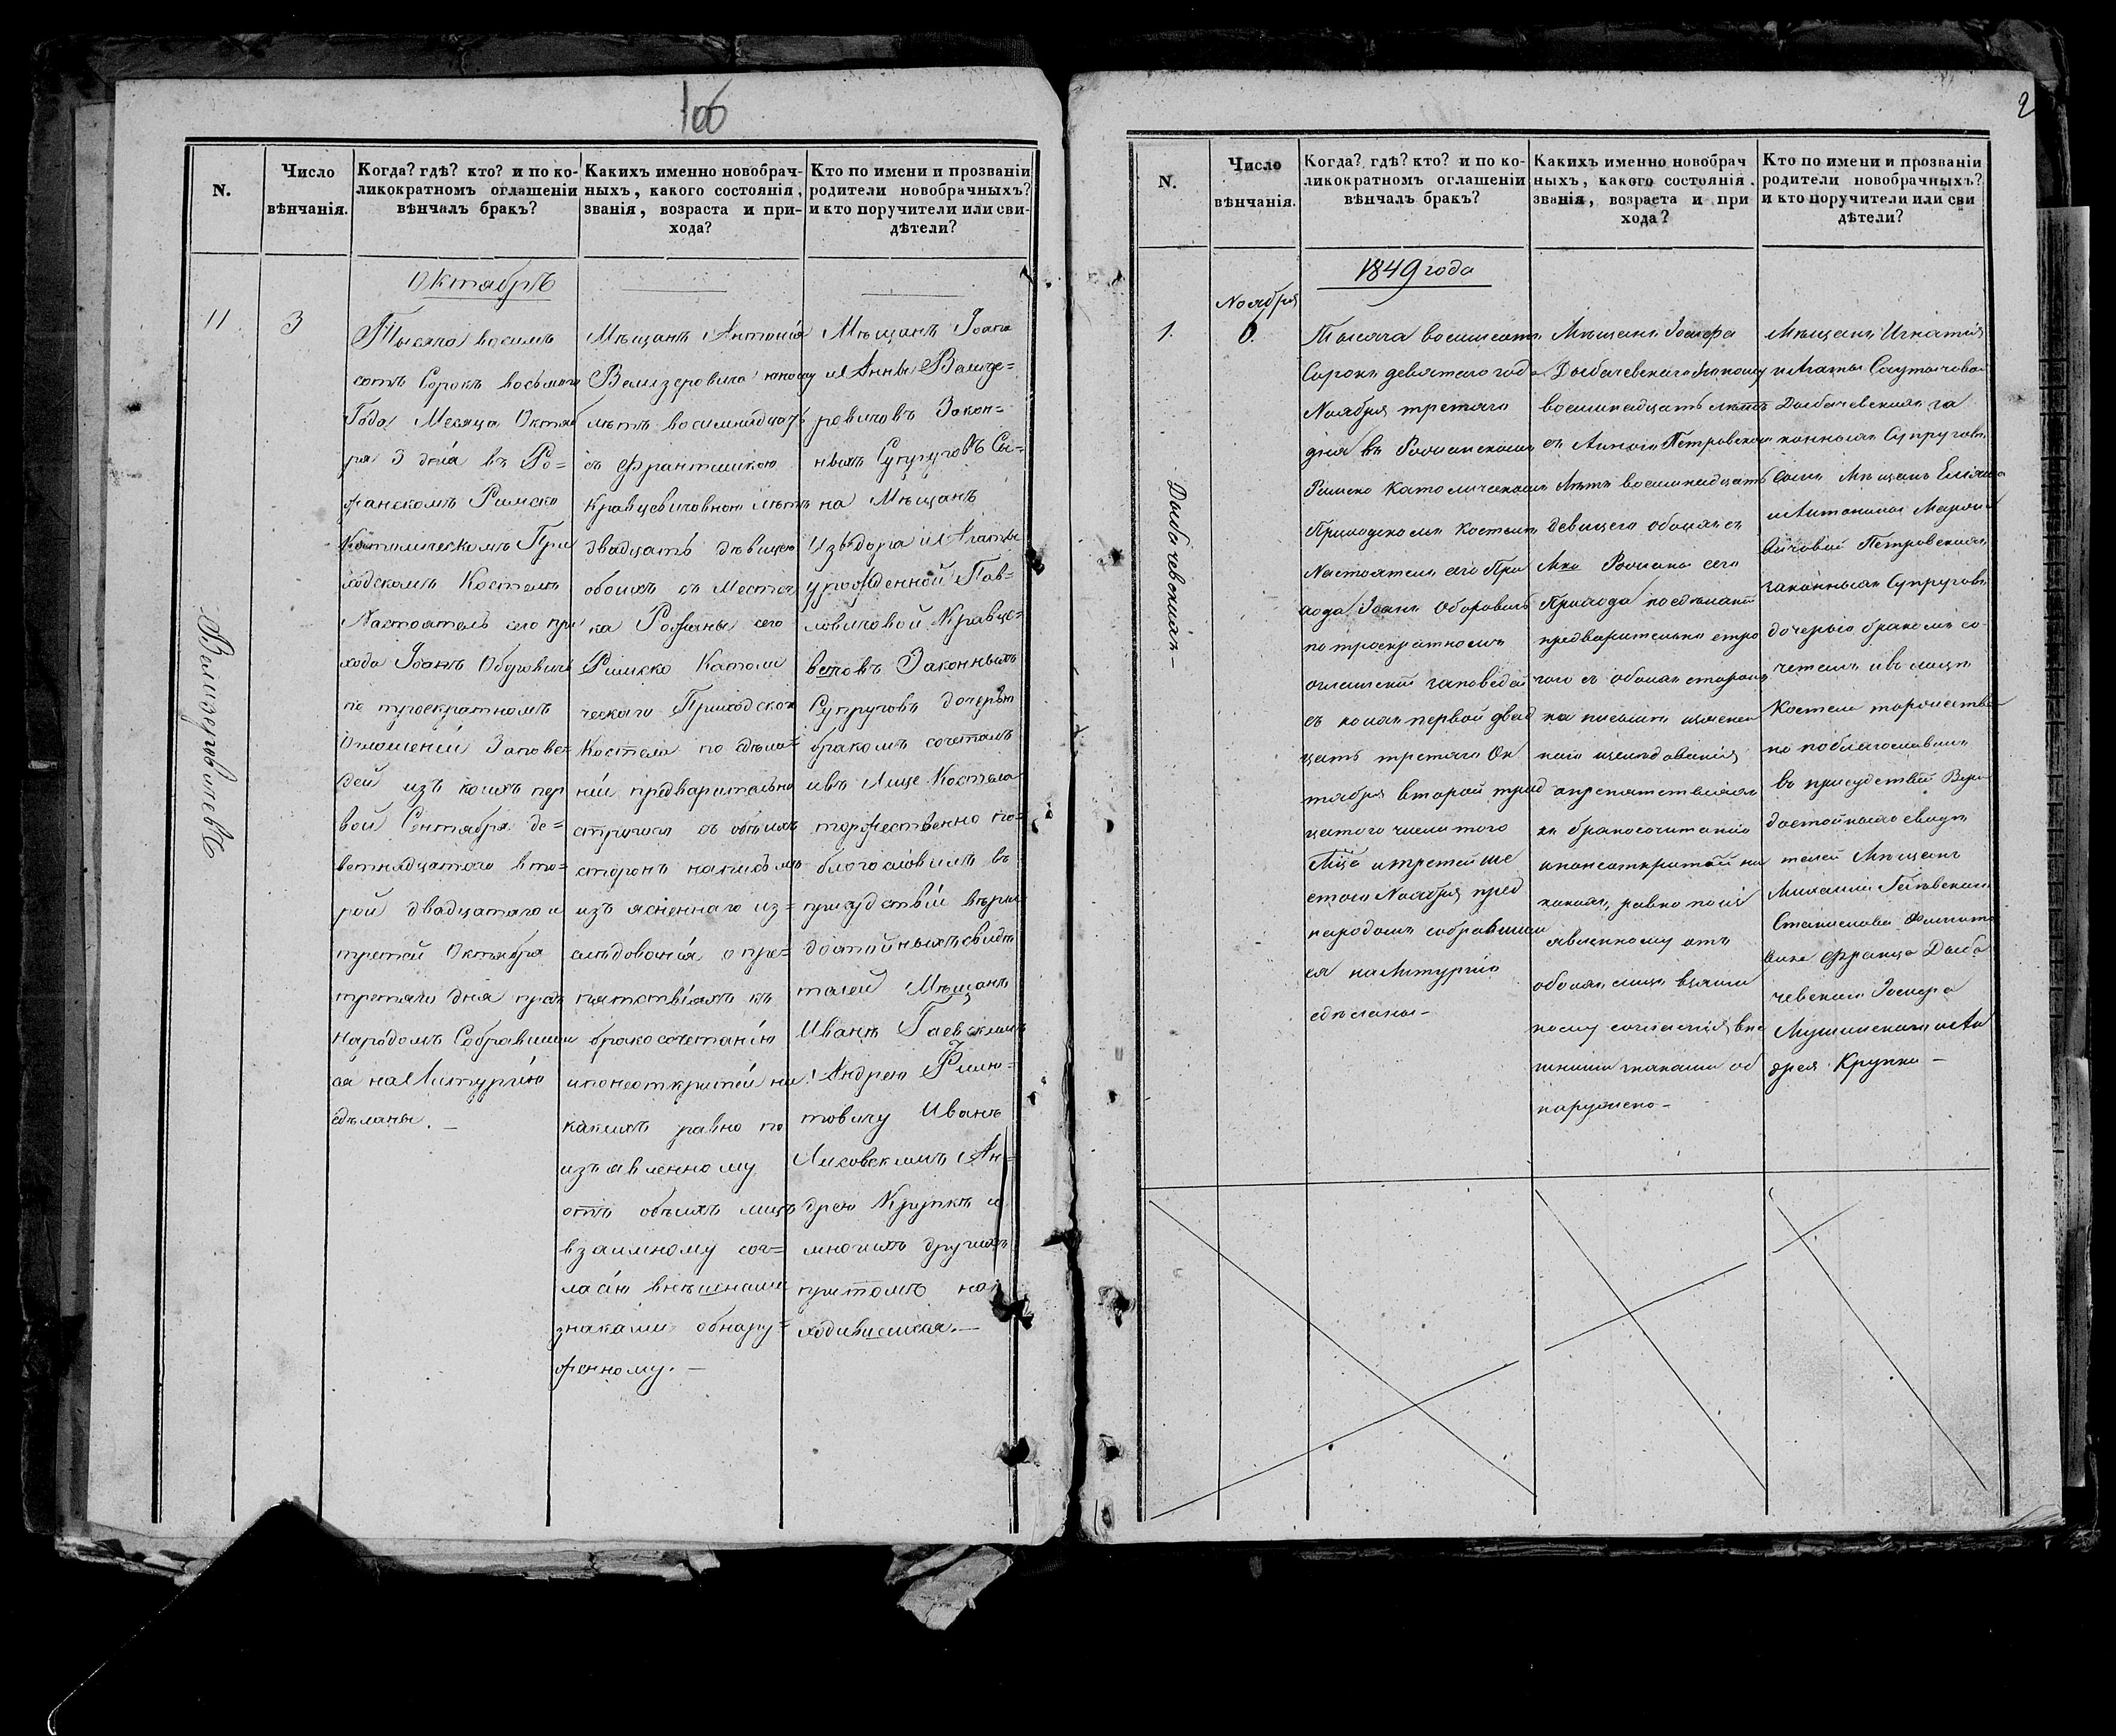 106
N.
Число
вѣнчанія.
Когда? гдѣ? кто? и по ко-
ликократномъ оглашеніи
вѣнчалъ бракъ?
Какихъ именно новобрач-
ныхъ, какого состоянія,
званія, возраста и при-
хода?
Кто по имени и прозванію
родители новобрачныхъ?
и кто поручители или сви-
дѣтели?
11
3
Октябрь
Тысяча восемь
сотъ Сорокъ восьмого
Года Месяца Октяб
ря 3 дня въ Ро=
жанскомъ Римско
Католическомъ При
ходскомъ Костелѣ
Настоятель сего при
хода Іоанъ
по троекратномъ
Оглашеніи Запове=
дей изъ коихъ пер
вой Сентября де=
ветнядцатаго вто=
рой двадцатаго и
третей Октября
третяго дня предъ
Народомъ Собравшим
ся на Литургію
сдѣланы. —
Мѣщанъ Антонія
юношу
лѣтъ восемнадцать
съ Францишкою
Кравцевичовною лѣтъ
двадцать дѣвицею
обоихъ съ Местеч
ка Рожаны сего
Римско Католи
ческаго Приходскон
Костела по сдѣла=
ніи предварительно
строгаго съ обѣихъ
сторонъ написьмѣ
изъ ясненнаго из=
слѣдованія о пре=
пятствіяхъ къ
бракосочетанію
и понеоткрытіи ни
какихъ равно по
изъявленному
отъ обѣихъ лицъ
взаимному сог=
ласію внѣшними
знаками обнару=
женному. —
Мѣщанъ Іоана
и Анны
Закон=
ныхъ Супруговъ Сы=
на Мѣщанъ
Изѣдора и Агаты
урожденной Пав=
ловичовой Кравце=
Законныхъ
Супруговъ дочерью
бракомъ сочеталъ
ивъ Лице Костела
торжественно по=
благословилъ въ
присудствіи вѣры
достойныхъ свидѣ
телей Мѣщанъ
Иванѣ Гаевскимъ
Андрею Филю=
товичу Иванъ
Лиховскимъ Ан=
дрею Крупкѣ и
многихъ другихъ
притомъ на
ходившихся. —
2
N.
Число
вѣнчанія.
Когда? гдѣ? кто? и по ко-
ликократномъ оглашеніи
вѣнчалъ бракъ?
Какихъ именно новобрач
ныхъ, какого состоянія.
званія, возраста и при
хода?
Кто по имени и прозваніи
родители новобрачныхъ?
и кто поручители или сви
дѣтели?
1849 года
Ноября
1.
6.
Тысяча восемьсотъ
Сорокъ девятаго года
Ноября третяго
дня въ Рожанскомъ
Римско Католическомъ
Приходскомъ Костелѣ
Настоятель сего При
хода Іоанъ
по троекратномъ
оглашеніи заповедей
съ коихъ первой двад
цать третяго Ок
тября второй трид
цатого числа того
Мца и третей ше
стого Ноября пред
народомъ собравшим
ся на Литургію
сдѣланы —
Мѣщанъ Іосифа
юношу
восемнадцать лѣтъ
съ Анною Петровскою
Лѣтъ восемнадцать
девицею обоихъ съ
Мка Рожаны сего
Прихода по сдѣланіи
предварительно стро
гого съ обоихъ сторонъ
на письмѣ изяснен
наго изследованія
о препятствіяхъ
къ бракосочитанію
и понеоткрытіи ни
какихъ, равно по из
явленному отъ
обоихъ лицъ взаим
ному согласія внѣ
шними знаками об
наружено —
Мѣщанъ Игнатія
и Агаты
за
конныхъ Супруговъ
сына Мѣщанъ
и Антонины
Петровскихъ
законныхъ Супруговъ
дочерью бракомъ со
четалъ ивъ лицѣ
Костела торжестве
но поблагославилъ
въ присудствіи Веры
достойныхъ свидѣ
телей Мѣщанъ
Михаила
Станислава
Франца Дыба
чевскихъ Іосифа
и Ан
дрея Крупки —